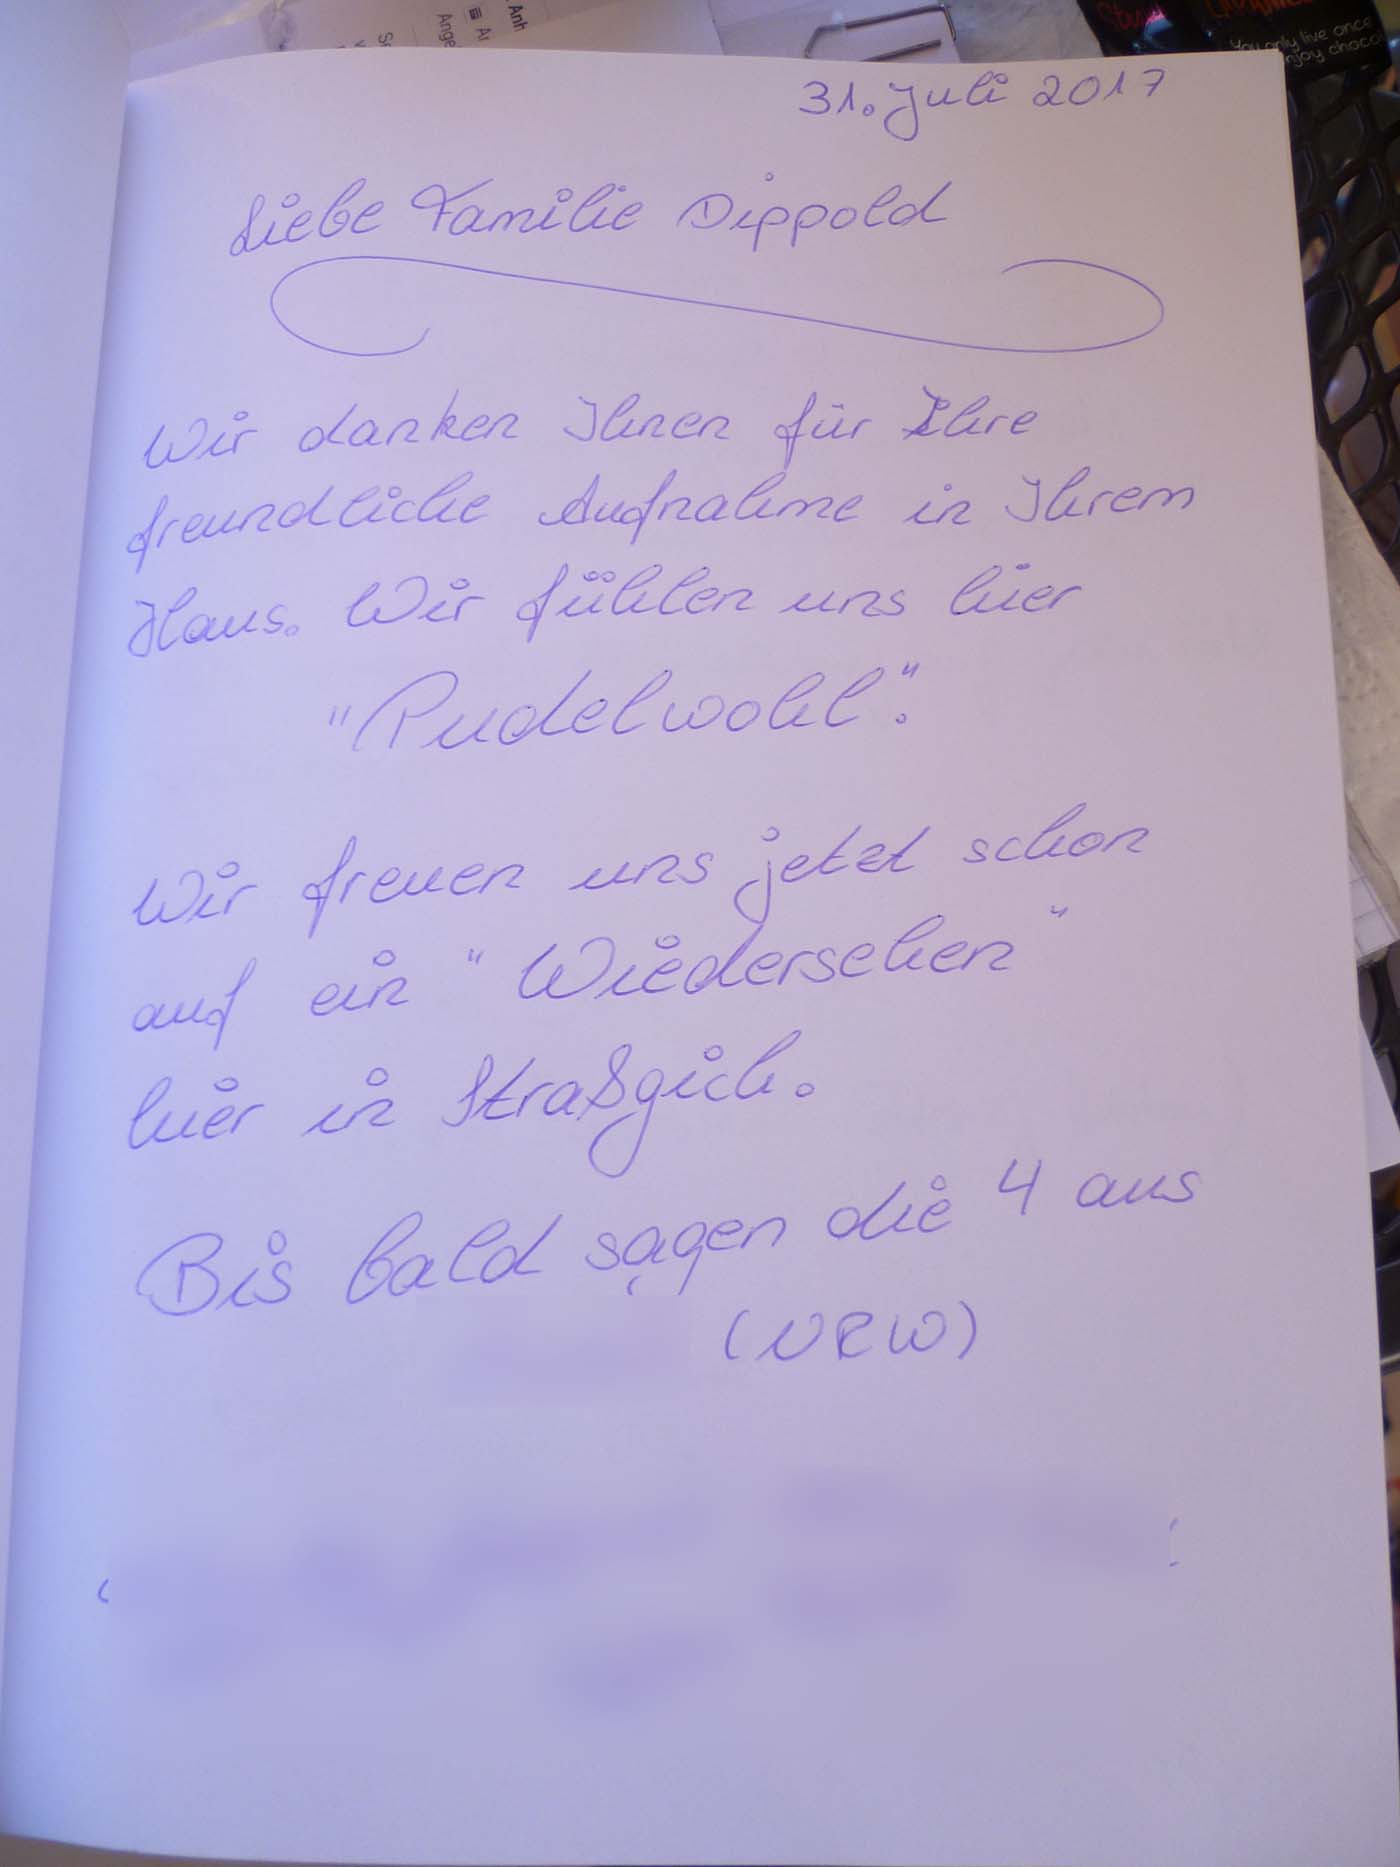 . Anh
Ange
You only live once
njoy choco
31. Juli 2017
Liebe Familie Dippold
Wir danken Ihnen für Ihre
freundliche Aufnahme in Ihrem
Haus. Wir fühlen uns hier
"Pudelwohl".
Wir freuen uns jetzt schon
auf ein "Wiedersehen"
hier in Straßgich.
Bis bald sagen die 4 aus
(NRW)